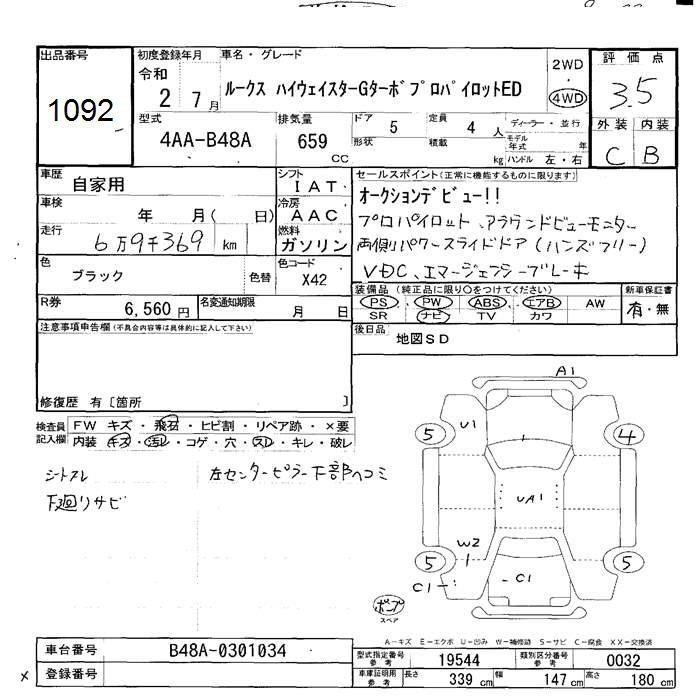 出品番号
1092
初度登録年月
令和
2 7月
車名・グレード
ルークス ハイウェイスターGターボプロパイロットED
2WD
・
4WD
評価点
3.5
型式
4AA-B48A
排気量
659
CC
ドア 5
形状
定員 4 人
積載 kg
ディーラー・並行
モデル年式 年
ハンドル 左・右
外装 内装
C B
車歴
自家用
シフト
IAT
車検
年 月( 日)
冷房
AAC
走行
6万9千369 km
燃料
ガソリン
色
ブラック
色替
色コード
X42
R券
6,560 円
名変通知期限
月 日
セールスポイント(正常に機能するものに限ります)
オークションデビュー!!
プロパイロット、アラウンドビューモニター
両側パワースライドドア(ハンズフリー)
VDC、エマージェンシーブレーキ
装備品(純正品に限り○をつけてください)
PS PW ABS エアB AW
SR ナビ TV カワ
新車保証書
有・無
後日品
地図SD
注意事項申告欄(不具合内容等は具体的に記入して下さい)
修復歴 有〔箇所 〕
検査員記入欄
FW キズ・飛石・ヒビ割・リペア跡・×要
内装 キズ・汚レ・コゲ・穴・スレ・キレ・破レ
シートスレ
下廻りサビ
左センターピラー下部ヘコミ
A1
U1
5
4
UA1
W2
5
5
C1
C1
ポンプ
スペア
A-キズ E-エクボ U-凹み W-補修跡 S-サビ C-腐食 XX-交換済
車台番号
B48A-0301034
登録番号
型式指定番号
参考
19544
類別区分番号
参考
0032
車庫証明用
参考
長さ 339 cm
幅 147 cm
高さ 180 cm
×